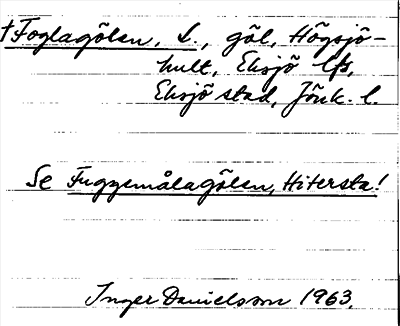 † Foglagölen, S., göl, Högsjö-
hult, Eksjö lfs,
Eksjö stad, Jönk. l.
Se Fuggemålagölen, Hitersta!
Inger Danielsson 1963.